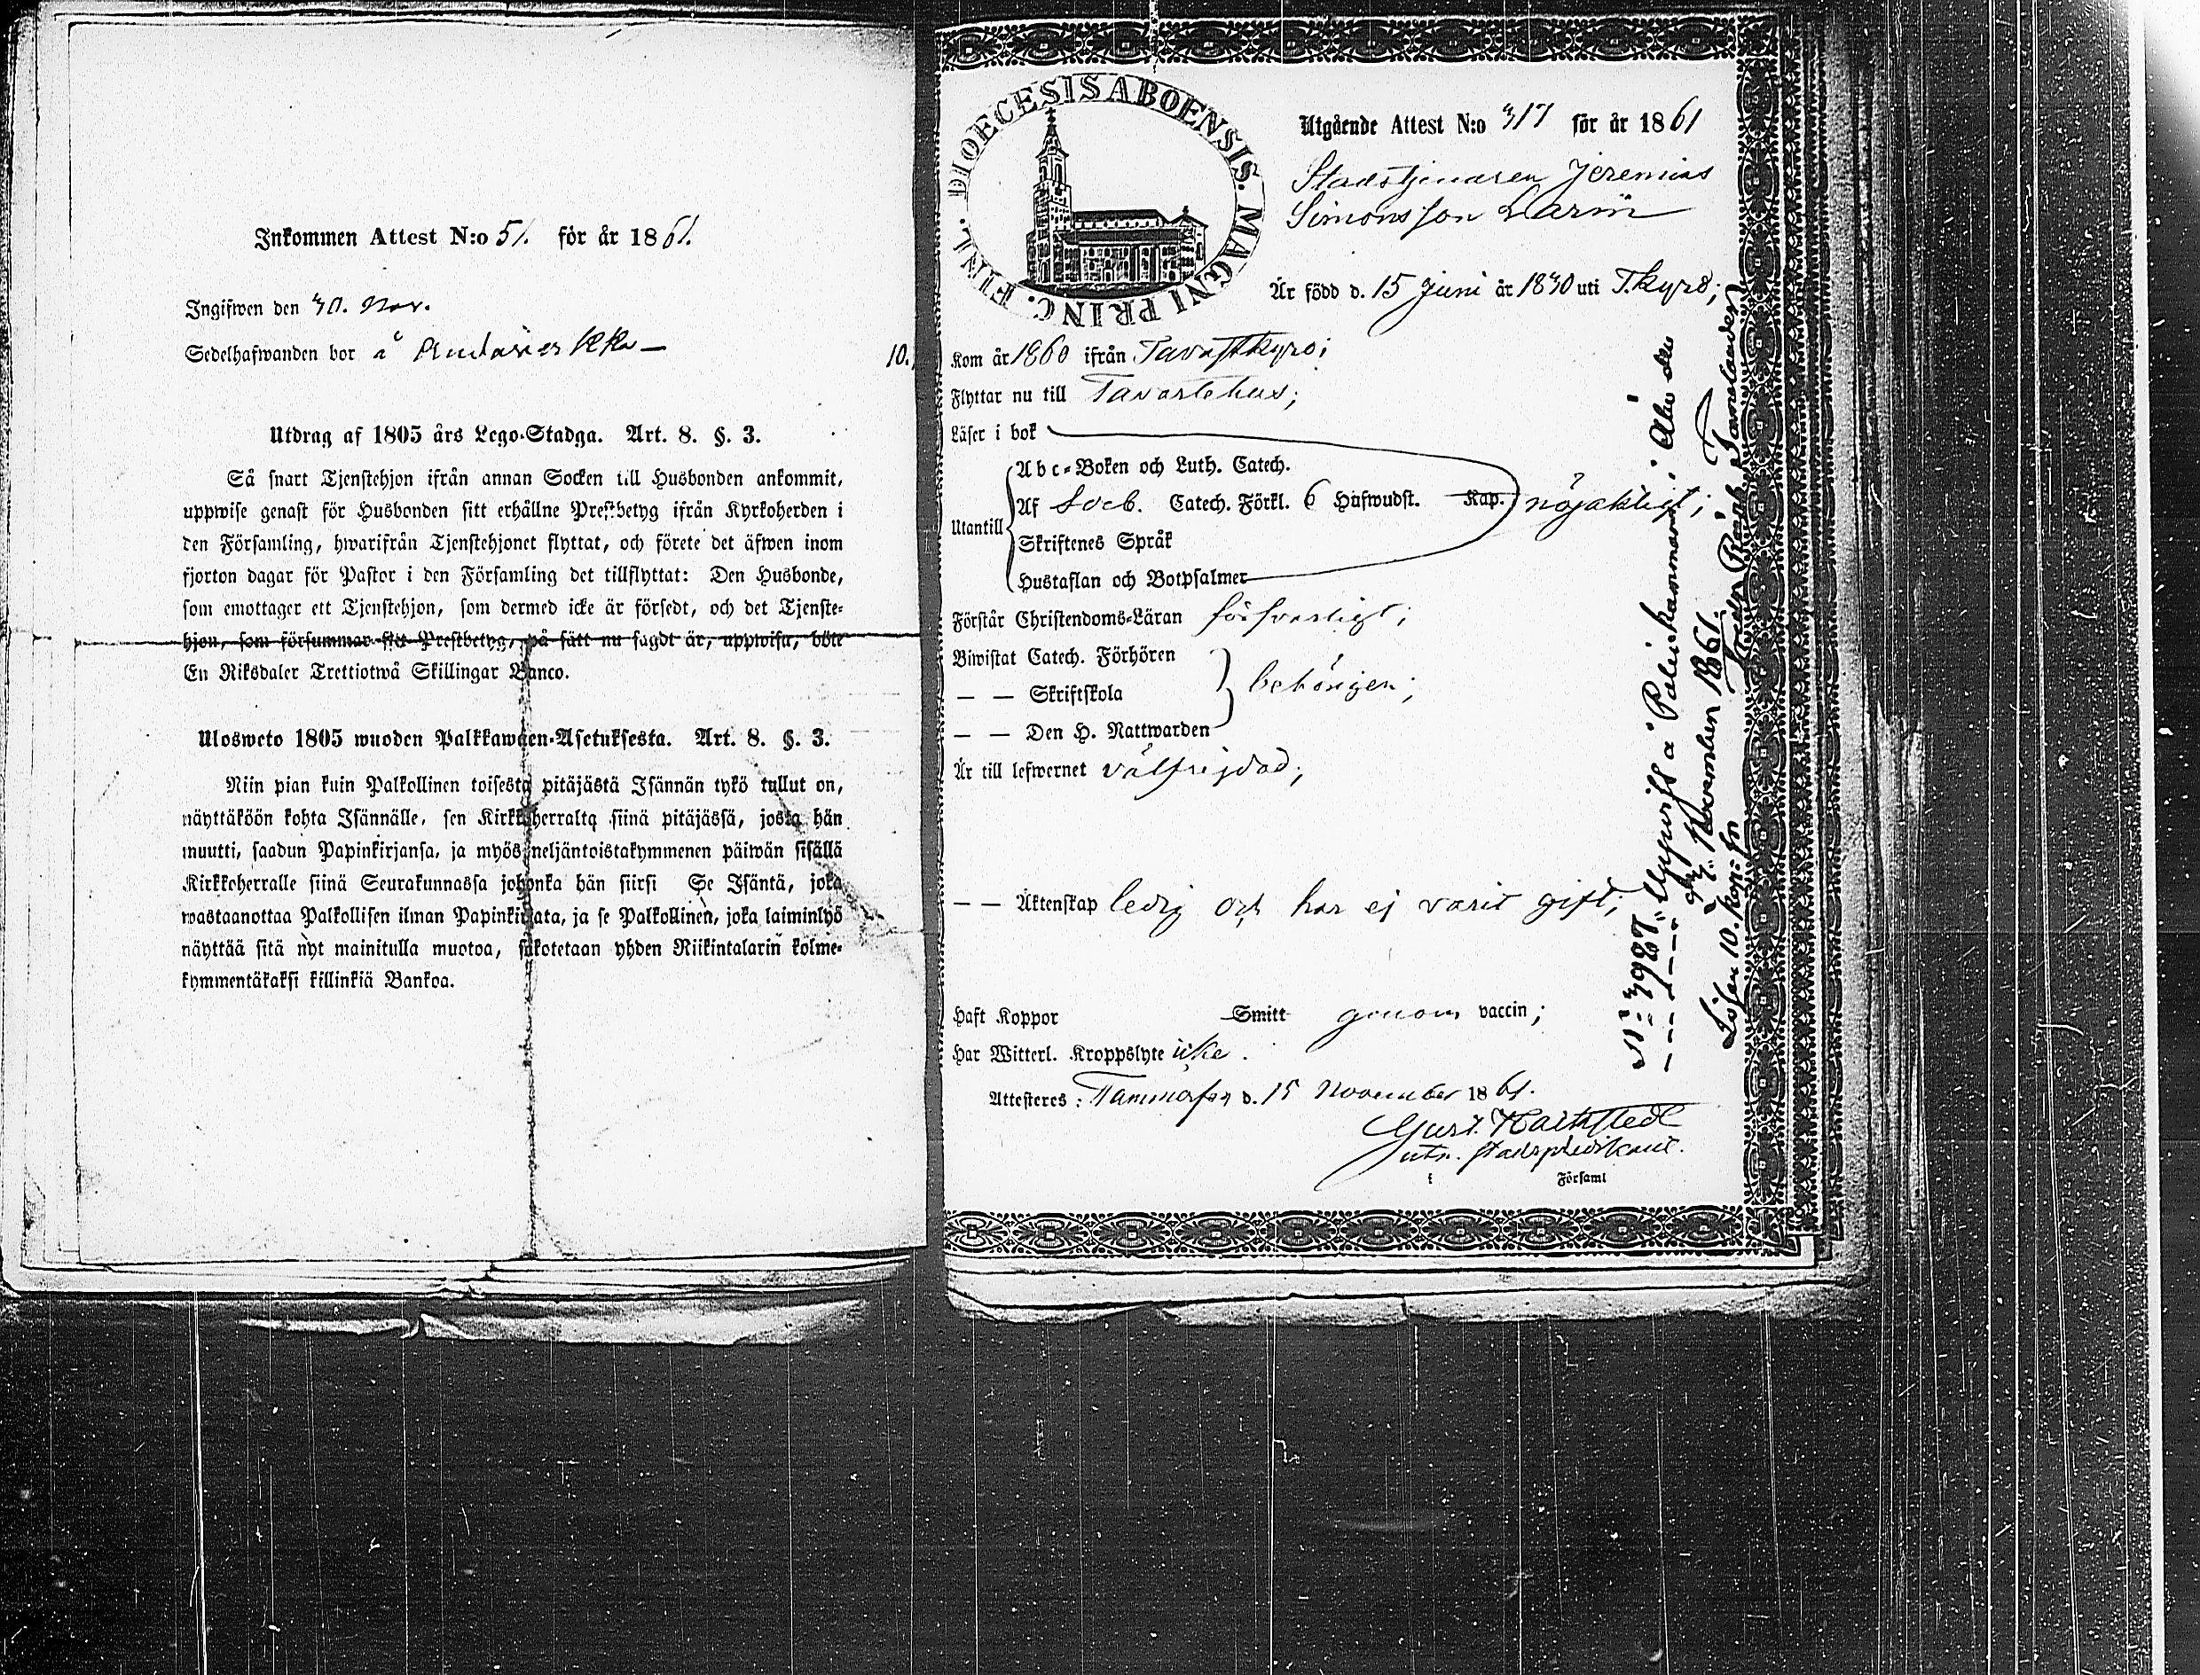 Inkommen Attest N:o 51. för år 1861.
Ingifwen den 30. Nov.
Sedelhafwanden bor å
10.
Utdrag af 1805 års Lego-Stadga. Art. 8. §. 3.
Så snart Tjenstehjon ifrån annan Socken till Husbonden ankommit,
uppwise genast för Husbonden sitt erhållne Prestbetyg ifrån Kyrkoherden i
den Församling, hwarifrån Tjenstehjonet flyttat, och förete det äfwen inom
fjorton dagar för Pastor i den Församling det tillflyttat: Den Husbonde,
som emottager ett Tjenstehjon, som dermed icke är försedt, och det Tjenste-
hjon, som försummar sitt Prestbetyg, på sätt nu sagdt är, uppwisa, böte
En Riksdaler Trettiotwå Skillingar Banco.
Ulosweto 1805 wuoden Palkkawäen-Asetuksesta. Art. 8. §. 3.
Niin pian kuin Palkollinen toisesta pitäjästä Isännän tykö tullut on,
näyttäköön kohta Isännälle, sen Kirkkoherralta siinä pitäjässä, josta hän
muutti, saadun Papinkirjansa, ja myös neljäntoistakymmenen päiwän sisällä
Kirkkoherralle siinä Seurakunnassa johonka hän siirsi Se Isäntä, joka
wastaanottaa Palkollisen ilman Papinkirjata, ja se Palkollinen, joka laiminlyö
näyttää sitä nyt mainitulla muotoa, sakotetaan yhden Riikintalarin kolme-
kymmentäkaksi killinkiä Bankoa.
DIOECESIS ABOENSIS. MAGNI PRINC. FINL.
Utgående Attest N:o 317 för år 1861
Stadstjenaren Jeremias
Simonsson
Är född d. 15 Juni år 1830 uti T.kyrö;
Kom år 1860 ifrån Tavastkyro;
Flyttar nu till Tavastehus;
Läser i bok
Utantill
Abc-Boken och Luth. Catech.
Af Sveb. Catech. Förkl. 6 Hufwudst. Kap.
Skriftenes Språk
Hustaflan och Botpsalmer
nöjaktligt;
Förstår Christendoms-Läran försvarligt;
Biwistat Catech. Förhören
— — Skriftskola
— — Den H. Nattwarden
behörigen;
Är till lefwernet välfrejdad;
— — Äktenskap ledig och har ej varit gift;
Haft Koppor Smitt genom vaccin;
Har Witterl. Kroppslyte icke.
Attesteres: Tammerfors d. 15 November 1861.
Gust.
stadspredikant.
i Församl
N:o 3987. Uppvist å Poliskammaren i Åbo den
November 1861.
Lösen 10. kop: s:r